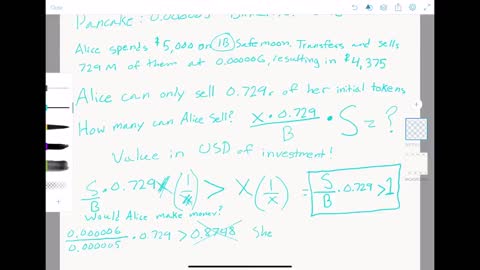 Close
Pancake: 0.000005
Alice spends $5,000 on 1B Safemoon. Transfers and sells
729M of them at 0.000006, resulting in $4,375
Alice can only sell 0.729x of her initial tokens
How many can Alice sell? X · 0.729 / B · S = ?
Value in USD of investment!
S/B · 0.729x (1/x) > X (1/x) = S/B · 0.729 > 1
Would Alice make money?
0.000006 / 0.000005 · 0.729 > 0.8748 She